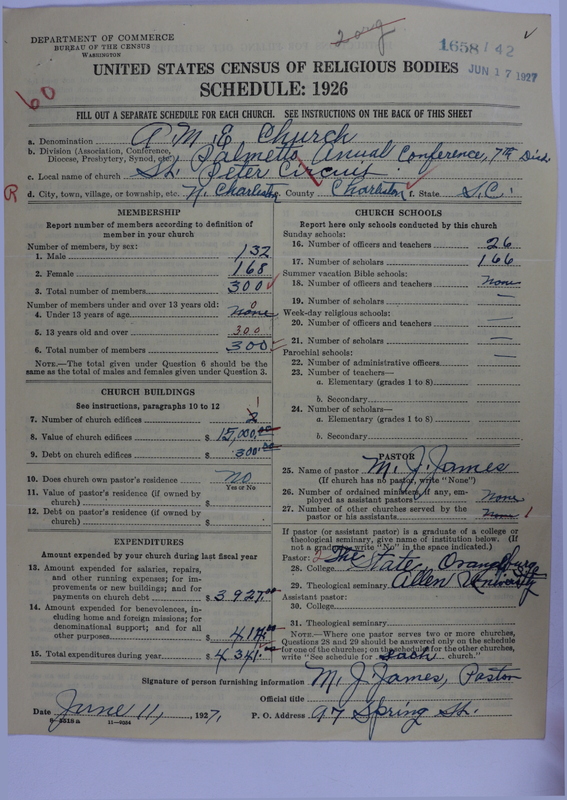 DEPARTMENT OF COMMERCE
BUREAU OF THE CENSUS
WASHINGTON
2 org
1658 / 42
JUN 17 1927
UNITED STATES CENSUS OF RELIGIOUS BODIES
SCHEDULE: 1926
60
FILL OUT A SEPARATE SCHEDULE FOR EACH CHURCH. SEE INSTRUCTIONS ON THE BACK OF THIS SHEET
a. Denomination A. M. E Church
b. Division (Association, Conference, Diocese, Presbytery, Synod, etc.) Palmetto Annual Conference, 7th Dist
c. Local name of church St. Peter Circuit
R
d. City, town, village, or township, etc. N. Charleston County Charleston f. State S.C.
MEMBERSHIP
Report number of members according to definition of
member in your church
Number of members, by sex:
1. Male 132
2. Female 168
3. Total number of members 300
Number of members under and over 13 years old:
4. Under 13 years of age none 0
5. 13 years old and over 300
6. Total number of members 300
NOTE.—The total given under Question 6 should be the
same as the total of males and females given under Question 3.
CHURCH BUILDINGS
See instructions, paragraphs 10 to 12
7. Number of church edifices 2
8. Value of church edifices $ 15,000.00
9. Debt on church edifices $ 300.00
10. Does church own pastor's residence? No
Yes or No
11. Value of pastor's residence (if owned by
church) $
12. Debt on pastor's residence (if owned by
church) $
EXPENDITURES
Amount expended by your church during last fiscal year
13. Amount expended for salaries, repairs,
and other running expenses; for im-
provements or new buildings; and for
payments on church debt $ 3927.00
14. Amount expended for benevolences, in-
cluding home and foreign missions; for
denominational support; and for all
other purposes $ 414.00
15. Total expenditures during year $ 4341.00
CHURCH SCHOOLS
Report here only schools conducted by this church
Sunday schools:
16. Number of officers and teachers 26
17. Number of scholars 166
Summer vacation Bible schools:
18. Number of officers and teachers none
19. Number of scholars —
Week-day religious schools:
20. Number of officers and teachers —
21. Number of scholars —
Parochial schools:
22. Number of administrative officers —
23. Number of teachers—
a. Elementary (grades 1 to 8)
b. Secondary
24. Number of scholars—
a. Elementary (grades 1 to 8)
b. Secondary
PASTOR
25. Name of pastor M. J. James
(If church has no pastor, write "None")
26. Number of ordained ministers, if any, em-
ployed as assistant pastors None
27. Number of other churches served by the
pastor or his assistants None 1
If pastor (or assistant pastor) is a graduate of a college or
theological seminary, give name of institution below. (If
not a graduate write "No" in the space indicated.)
Pastor:
28. College The State, Orangeburg
29. Theological seminary Allen University
Assistant pastor:
30. College
31. Theological seminary
NOTE.—Where one pastor serves two or more churches,
Questions 28 and 29 should be answered only on the schedule
for one of the churches; on the schedule for the other churches,
write "See schedule for each church."
Signature of person furnishing information M. J. James, Pastor
Official title
Date June 11, 1927.
P. O. Address 97 Spring St.
8-5318a 11-9554